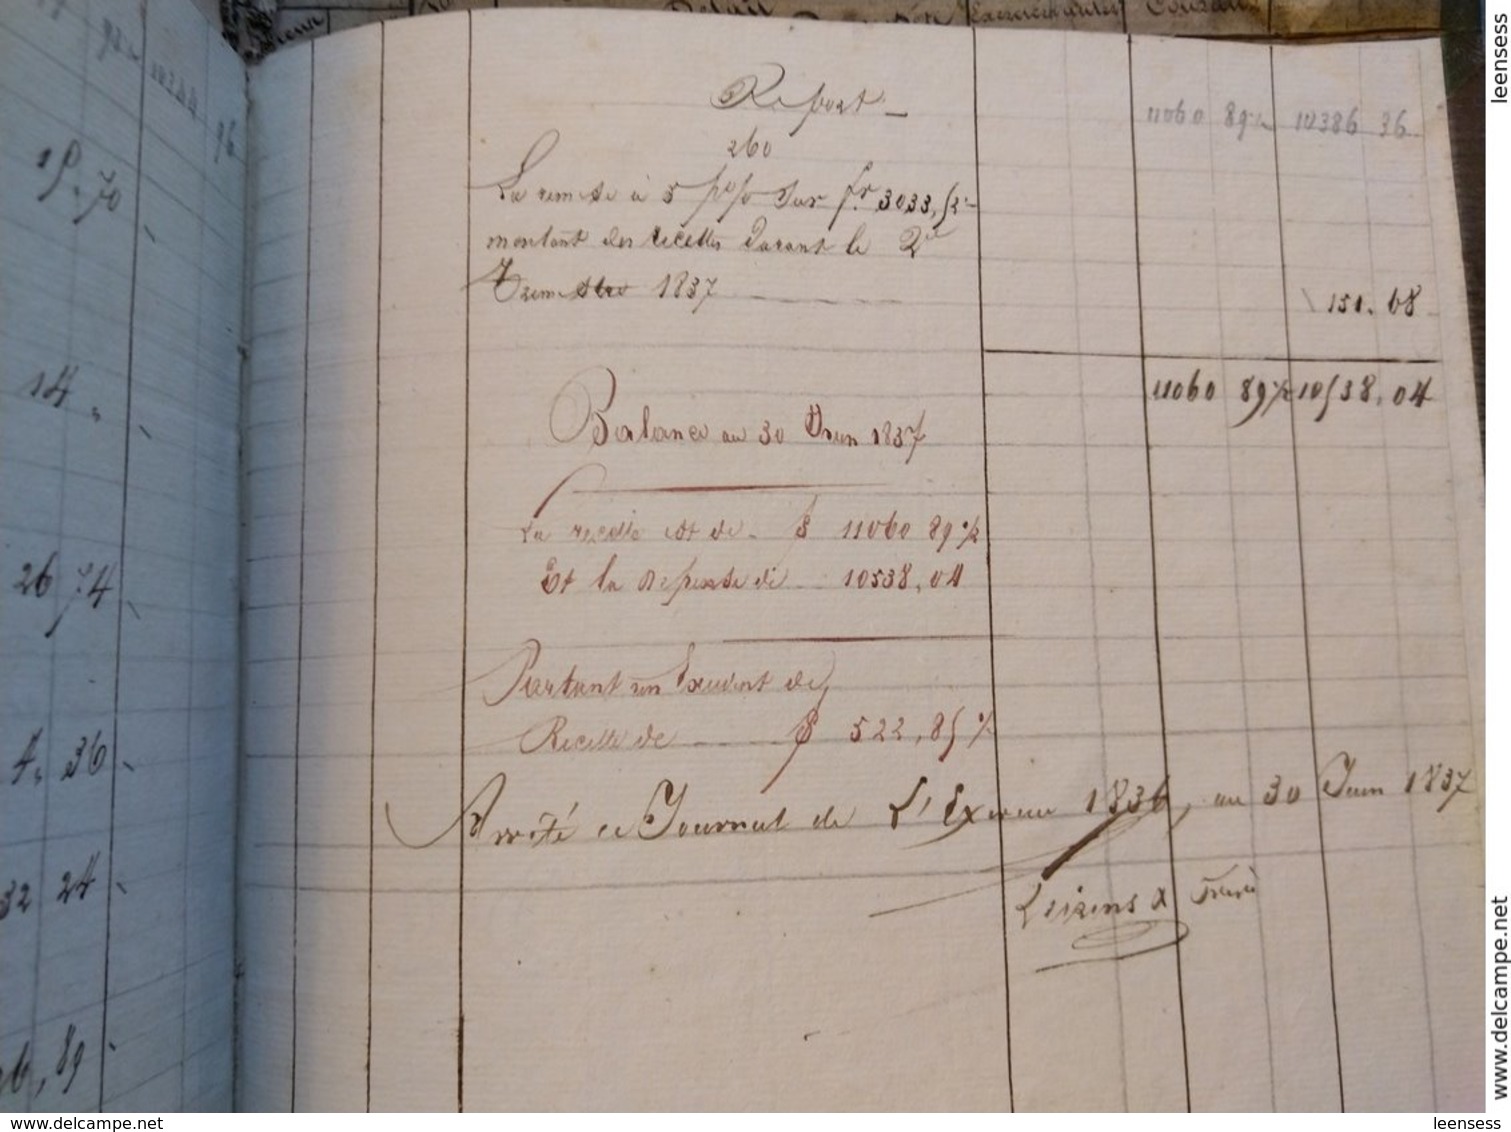 Report
11060 89½ 10386 36
260
La remise à 5 p% sur fr 3033,52
montant des recettes durant le 2e
Trimestre 1837
151. 68
11060 89½ 10538,04
Balance au 30 Juin 1837
La recette est de 11060 89½
Et la depense de 10538,04
Partant un Excedent de
Recette de 522,85½
Arrêté ce Journal de L'Exercice 1836, au 30 Juin 1837
19. 70
14
26 74
4. 36
32 24
89
96
leensess
www.delcampe.net
www.delcampe.net
leensess